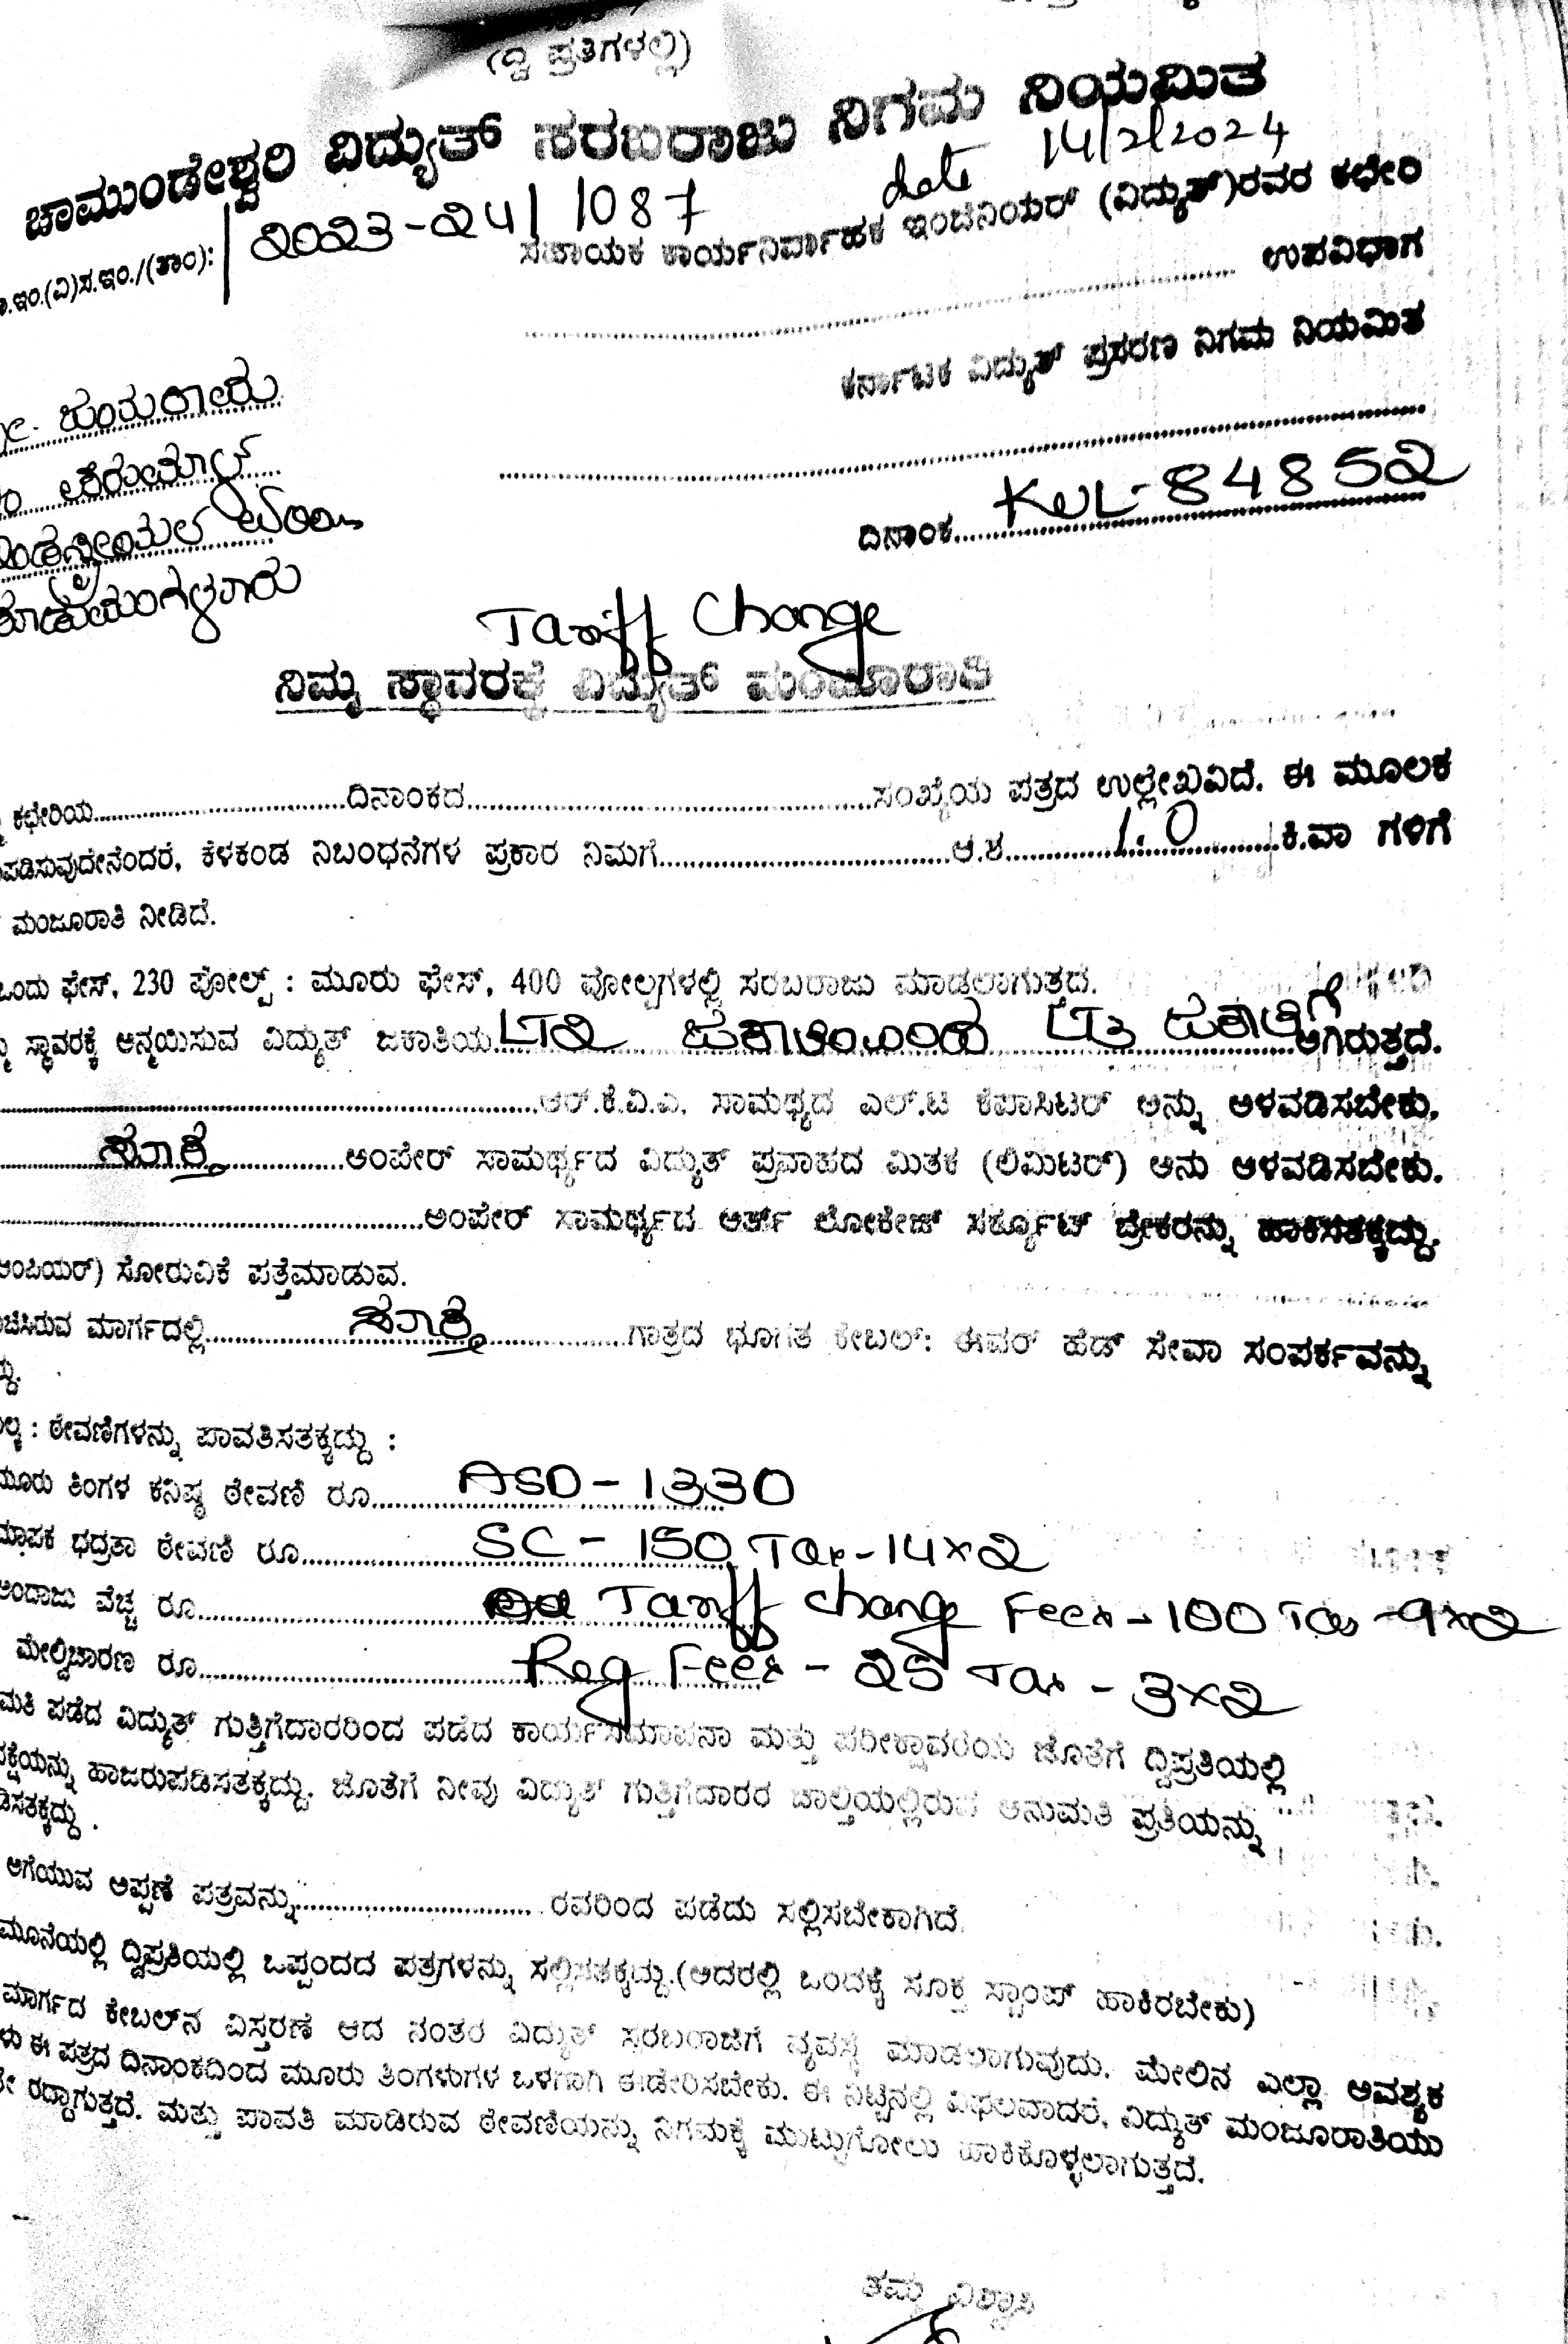 (ದ್ವಿ ಪ್ರತಿಗಳಲ್ಲಿ)
ಚಾಮುಂಡೇಶ್ವರಿ ವಿದ್ಯುತ್ ಸರಬರಾಜು ನಿಗಮ ನಿಯಮಿತ
date 14/2/2024
ಇಂ.(ವಿ)ಸ.ಇಂ./(ತಾಂ): / 2023-24/ 1087
ಸಹಾಯಕ ಕಾರ್ಯನಿರ್ವಾಹಕ ಇಂಜಿನಿಯರ್ (ವಿದ್ಯುತ್)ರವರ ಕಛೇರಿ
ಉಪವಿಭಾಗ
ಕರ್ನಾಟಕ ವಿದ್ಯುತ್ ಪ್ರಸರಣ ನಿಗಮ ನಿಯಮಿತ
ದಿನಾಂಕ KWL-84852
Tariff Change
ನಿಮ್ಮ ಸ್ಥಾವರಕ್ಕೆ ವಿದ್ಯುತ್ ಮಂಜೂರಾತಿ
ಕಛೇರಿಯ ದಿನಾಂಕದ ಸಂಖ್ಯೆಯ ಪತ್ರದ ಉಲ್ಲೇಖವಿದೆ. ಈ ಮೂಲಕ
ಪಡಿಸುವುದೇನೆಂದರೆ, ಕೆಳಕಂಡ ನಿಬಂಧನೆಗಳ ಪ್ರಕಾರ ನಿಮಗೆ ಆ.ಶ 1.0 ಕಿ.ವಾ ಗಳಿಗೆ
ಮಂಜೂರಾತಿ ನೀಡಿದೆ.
ಒಂದು ಫೇಸ್, 230 ವೋಲ್ಟ್ : ಮೂರು ಫೇಸ್, 400 ವೋಲ್ಟಗಳಲ್ಲಿ ಸರಬರಾಜು ಮಾಡಲಾಗುತ್ತದೆ.
ಸ್ಥಾವರಕ್ಕೆ ಅನ್ವಯಿಸುವ ವಿದ್ಯುತ್ ಜಕಾತಿಯ LT2 ಜಕಾತಿಯಿಂದ LT3 ಜಕಾತಿಗೆ ಆಗಿರುತ್ತದೆ.
ಆರ್.ಕೆ.ವಿ.ಎ. ಸಾಮರ್ಥ್ಯದ ಎಲ್.ಟಿ ಕೆಪಾಸಿಟರ್ ಅನ್ನು ಅಳವಡಿಸಬೇಕು.
ಅಂಪೇರ್ ಸಾಮರ್ಥ್ಯದ ವಿದ್ಯುತ್ ಪ್ರವಾಹದ ಮಿತಕ (ಲಿಮಿಟರ್) ಆನು ಅಳವಡಿಸಬೇಕು.
ಅಂಪೇರ್ ಸಾಮರ್ಥ್ಯದ ಅರ್ತ್ ಲೋಕೇಜ್ ಸರ್ಕ್ಯೂಟ್ ಬ್ರೇಕರನ್ನು ಹಾಕಿಸತಕ್ಕದ್ದು.
ಆಂಪಿಯರ್) ಸೋರುವಿಕೆ ಪತ್ತೆಮಾಡುವ.
ಮಾರ್ಗದಲ್ಲಿ ಗಾತ್ರದ ಭೂಗತ ಕೇಬಲ್: ಈವರ್ ಹೆಡ್ ಸೇವಾ ಸಂಪರ್ಕವನ್ನು
: ಠೇವಣಿಗಳನ್ನು ಪಾವತಿಸತಕ್ಕದ್ದು :
ಮೂರು ತಿಂಗಳ ಕನಿಷ್ಠ ಠೇವಣಿ ರೂ ASD - 1330
ಮಾಪಕ ಭದ್ರತಾ ಠೇವಣಿ ರೂ SC - 150 Tax-14x2
ಅಂದಾಜು ವೆಚ್ಚ ರೂ Tariff change Fees - 100 Tax -9x2
ಮೇಲ್ವಿಚಾರಣ ರೂ Reg Fees - 25 Tax - 3x2
ಮತಿ ಪಡೆದ ವಿದ್ಯುತ್ ಗುತ್ತಿಗೆದಾರರಿಂದ ಪಡೆದ ಕಾರ್ಯಸಮಾಪನಾ ಮತ್ತು ಪರೀಕ್ಷಾವರದಿಯ ಜೊತೆಗೆ ದ್ವಿಪ್ರತಿಯಲ್ಲಿ
ಹಾಜರುಪಡಿಸತಕ್ಕದ್ದು. ಜೊತೆಗೆ ನೀವು ವಿದ್ಯುತ್ ಗುತ್ತಿಗೆದಾರರ ಚಾಲ್ತಿಯಲ್ಲಿರುವ ಅನುಮತಿ ಪ್ರತಿಯನ್ನು
ಡಿಸತಕ್ಕದ್ದು.
ಅಗೆಯುವ ಅಪ್ಪಣೆ ಪತ್ರವನ್ನು ರವರಿಂದ ಪಡೆದು ಸಲ್ಲಿಸಬೇಕಾಗಿದೆ.
ಮೂನೆಯಲ್ಲಿ ದ್ವಿಪ್ರತಿಯಲ್ಲಿ ಒಪ್ಪಂದದ ಪತ್ರಗಳನ್ನು ಸಲ್ಲಿಸತಕ್ಕದ್ದು.(ಅದರಲ್ಲಿ ಒಂದಕ್ಕೆ ಸೂಕ್ತ ಸ್ಟಾಂಪ್ ಹಾಕಿರಬೇಕು)
ಮಾರ್ಗದ ಕೇಬಲ್‌ನ ವಿಸ್ತರಣೆ ಆದ ನಂತರ ವಿದ್ಯುತ್ ಸರಬರಾಜಿಗೆ ವ್ಯವಸ್ಥೆ ಮಾಡಲಾಗುವುದು. ಮೇಲಿನ ಎಲ್ಲಾ ಅವಶ್ಯಕ
ಈ ಪತ್ರದ ದಿನಾಂಕದಿಂದ ಮೂರು ತಿಂಗಳುಗಳ ಒಳಗಾಗಿ ಈಡೇರಿಸಬೇಕು. ಈ ನಿಟ್ಟಿನಲ್ಲಿ ವಿಫಲವಾದರೆ, ವಿದ್ಯುತ್ ಮಂಜೂರಾತಿಯು
ರದ್ದಾಗುತ್ತದೆ. ಮತ್ತು ಪಾವತಿ ಮಾಡಿರುವ ಠೇವಣಿಯನ್ನು ನಿಗಮಕ್ಕೆ ಮುಟ್ಟುಗೋಲು ಹಾಕಿಕೊಳ್ಳಲಾಗುತ್ತದೆ.
ತಮ್ಮ ವಿಶ್ವಾಸಿ